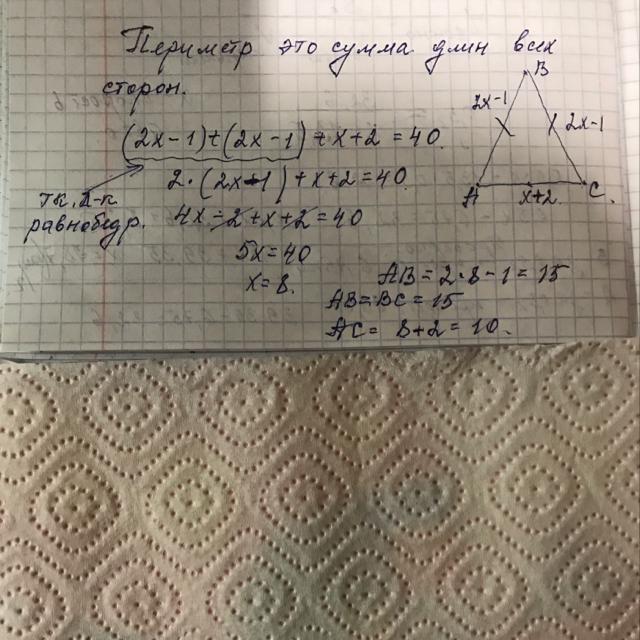 Периметр это сумма длин всех
сторон.
B
2x-1
2x-1
A
x+2
C.
(2x-1)+(2x-1)+x+2=40.
2·(2x-1)+x+2=40
т.к. Δ-к
равнобедр.
4x-2+x+2=40
5x=40
x=8.
AB=2·8-1=15
AB=BC=15
AC= 8+2=10.